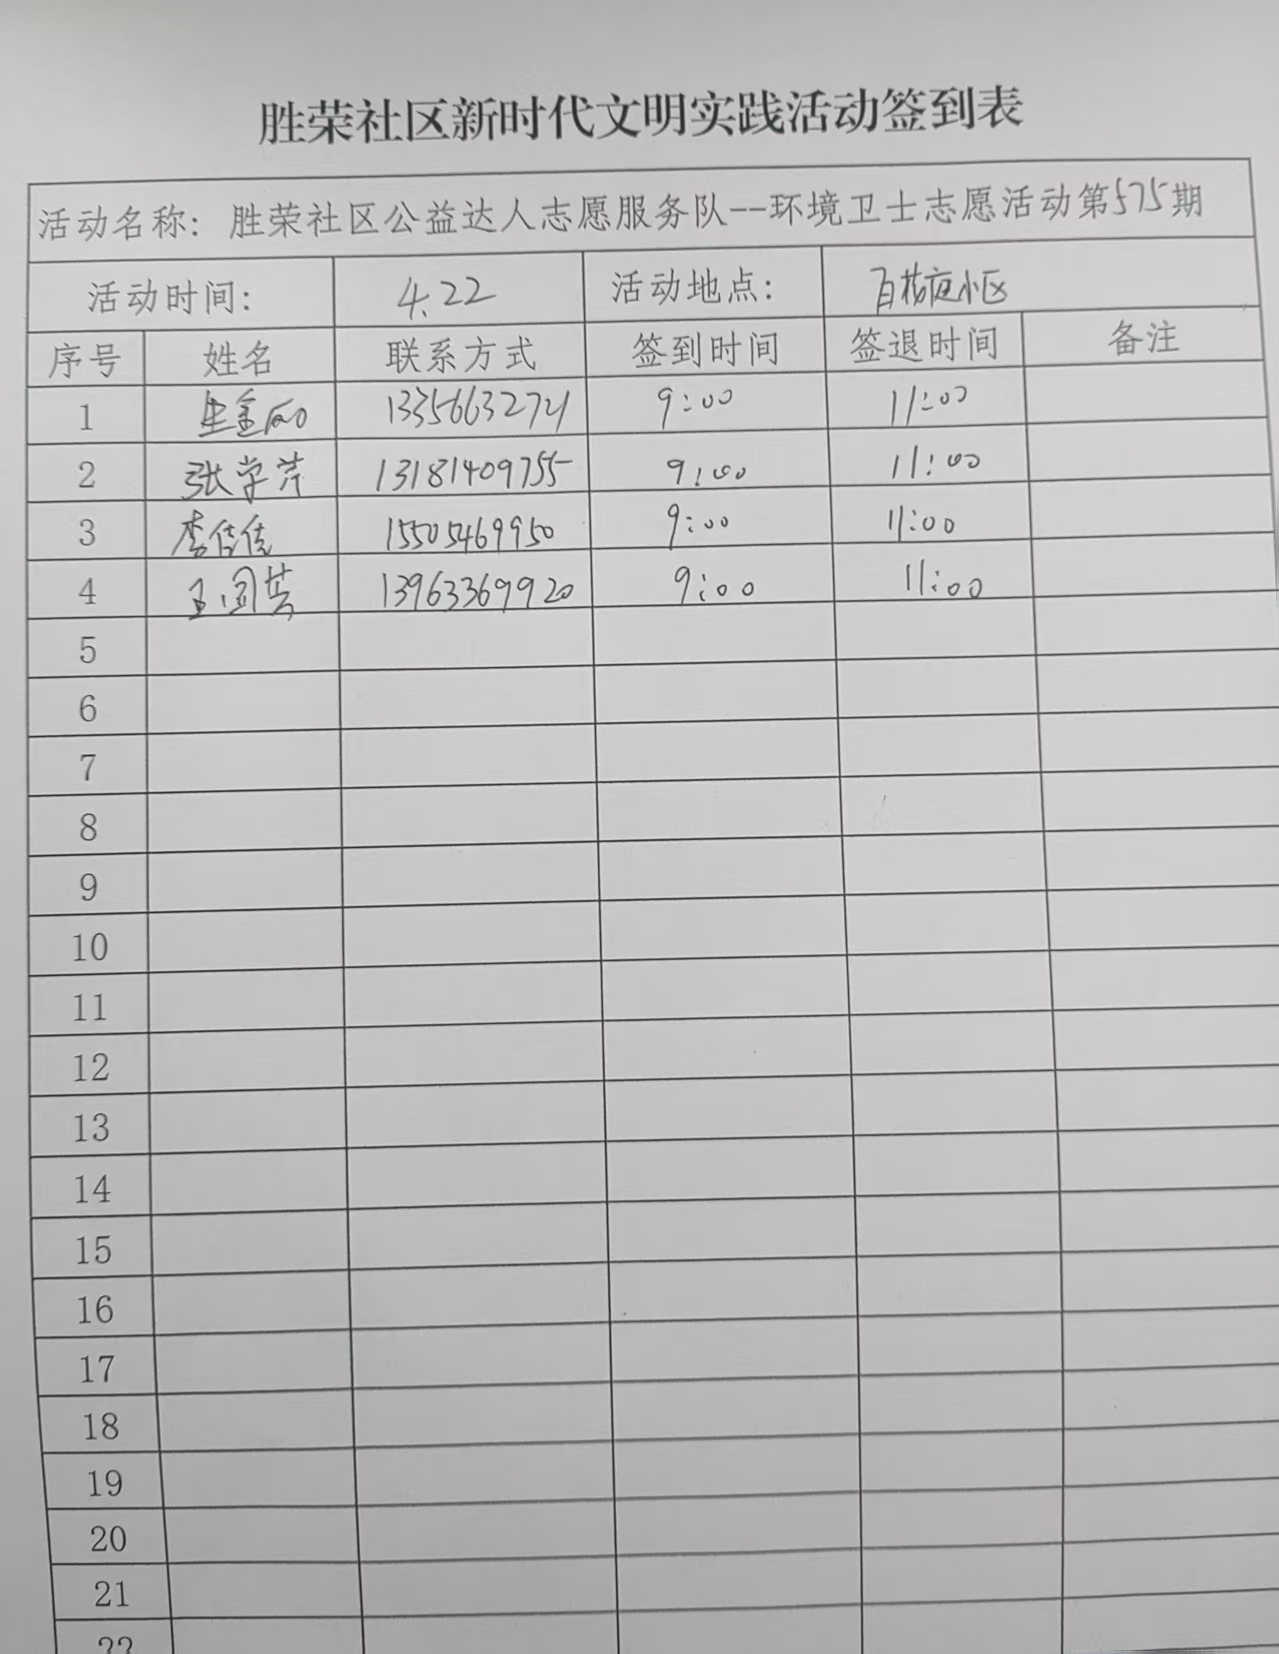 胜荣社区新时代文明实践活动签到表
活动名称：胜荣社区公益达人志愿服务队--环境卫士志愿活动第575期
活动时间： 4.22 活动地点： 百花庭小区
序号 姓名 联系方式 签到时间 签退时间 备注
1 9:00 11:00
2 张学芹 13181409755 9:00 11:00
3 李佳佳 15505469950 9:00 11:00
4 王国英 13963369920 9:00 11:00
5
6
7
8
9
10
11
12
13
14
15
16
17
18
19
20
21
22